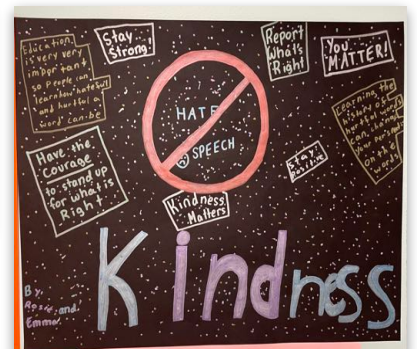 Education
is very very
important
so people can
learn how hateful
and hurtful a
word can be
Stay
Strong!
Report
What's
Right
You
MATTER!
HATE
SPEECH
Learning the
history of
harmful words
can change
your
on the
words
Have the
Courage
to stand up
for what is
Right.
Stay
positive
Kindness
Matters
Kindness
By,
Rosie and
Emma.